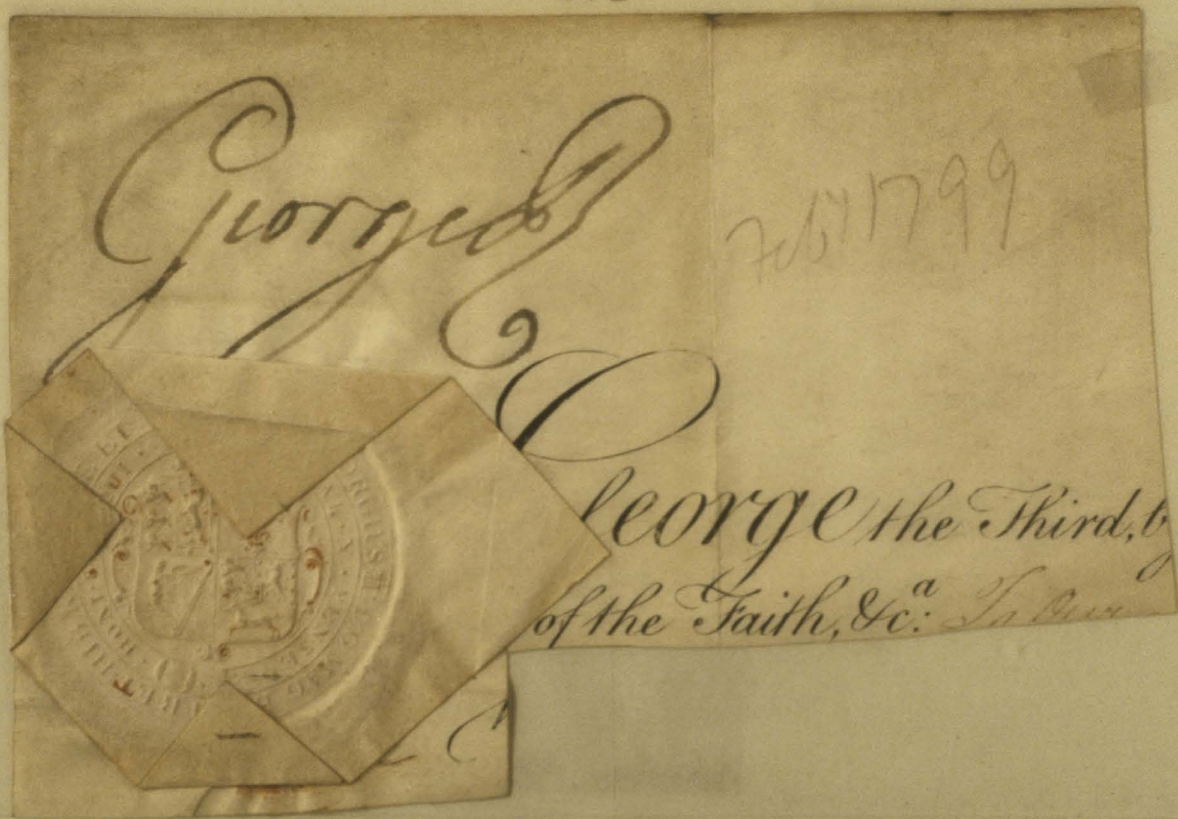 George R
Feby 1799
George the Third, b
of the Faith, &c.ª: To Our